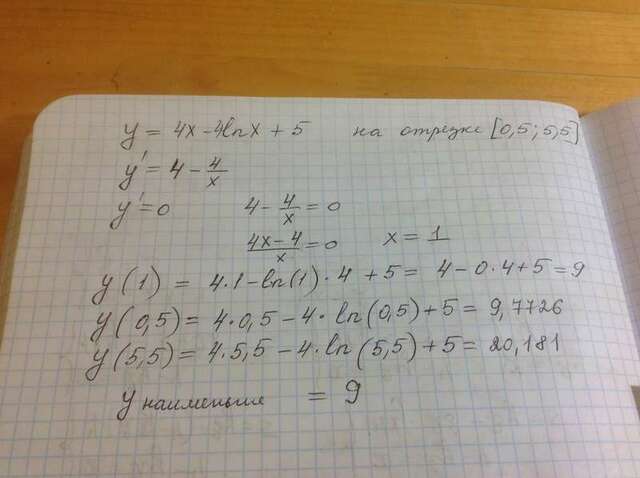 y = 4x - 4lnx + 5 на отрезке [0,5; 5,5]
y' = 4 - 4/x
y' = 0 4 - 4/x = 0
(4x - 4)/x = 0 x = 1
y(1) = 4·1 - ln(1)·4 + 5 = 4 - 0·4 + 5 = 9
y(0,5) = 4·0,5 - 4·ln(0,5) + 5 = 9,7726
y(5,5) = 4·5,5 - 4·ln(5,5) + 5 = 20,181
y наименьше = 9